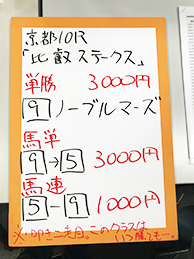 京都10R
「比叡ステークス」
単勝 3000円
9 ノーブルマーズ
馬単
9→5 3000円
馬連
5-9 1000円
※叩き二走目。このクラスは
いつ勝っても…